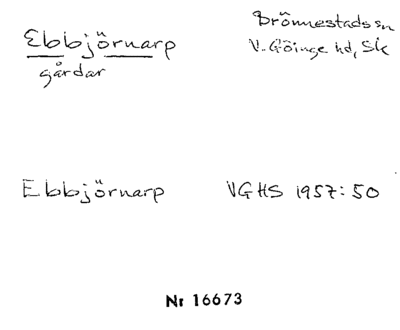 Ebbjörnarp
gårdar
Brönnestads sn
V. Göinge hd, Sk
Ebbjörnarp VGHS 1957:50
Nr 16673